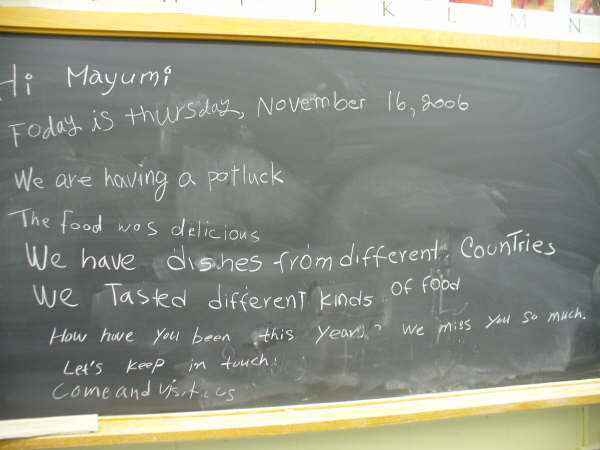 I J K L M N
Hi Mayumi
Today is thursday, November 16, 2006
We are having a potluck
The food was delicious
We have dishes from different Countries
We Tasted different kinds of food
How have you been this year? We miss you so much.
Let's keep in touch.
Come and visit us